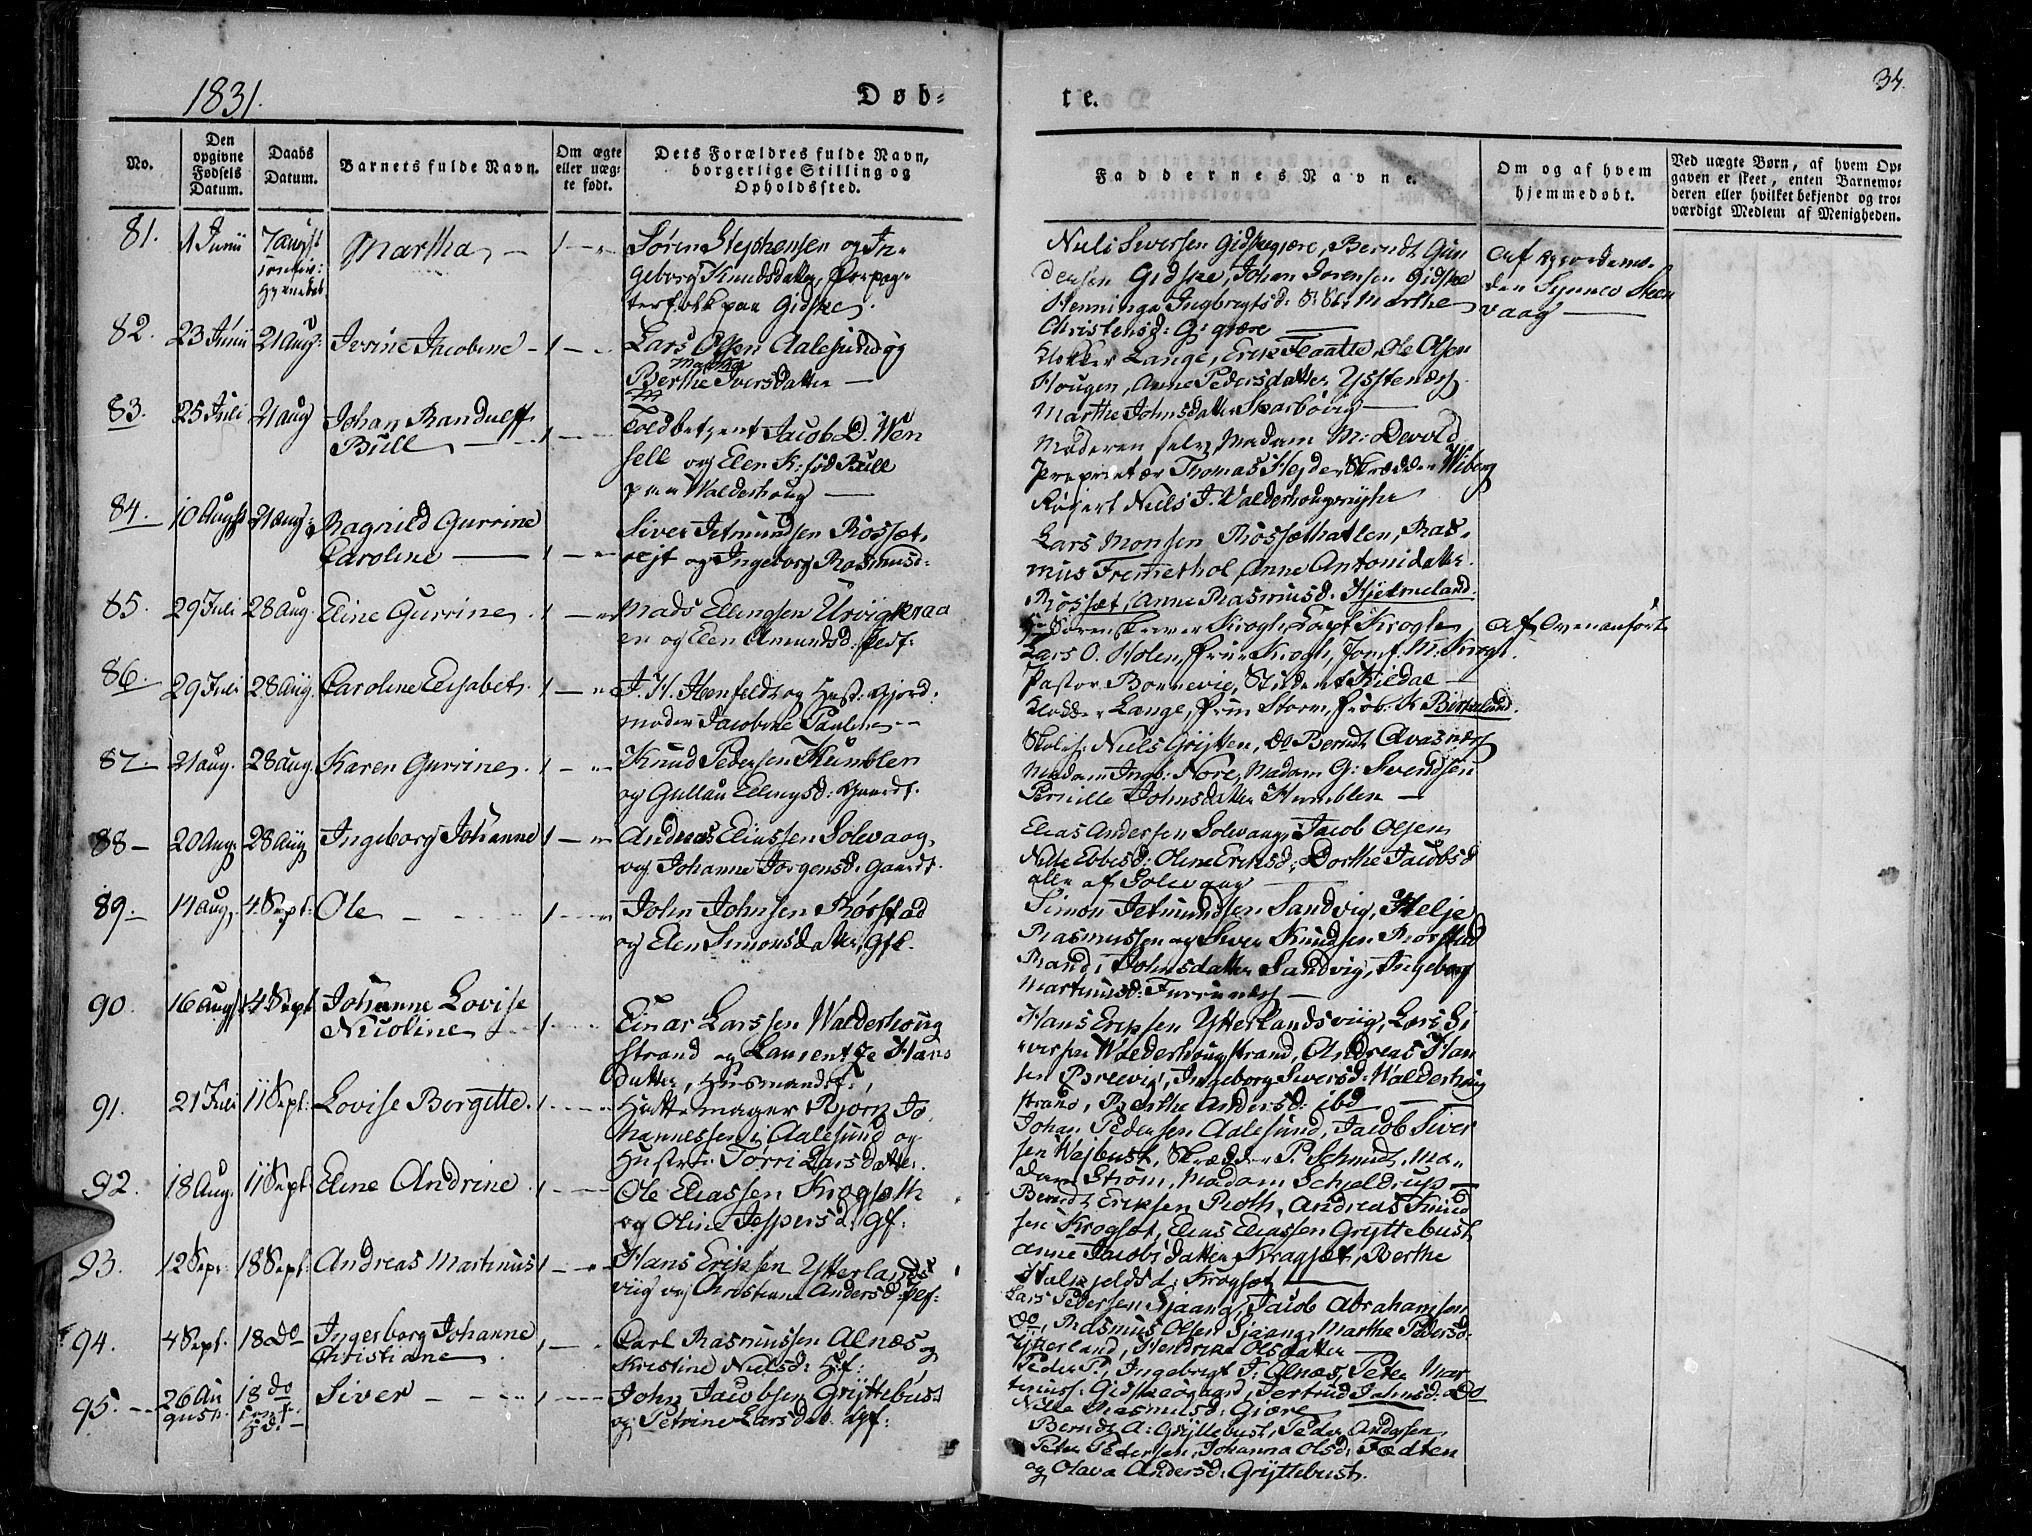 1831.
Døb-
te.
34.
No.
Den opgivne Fødsels Datum.
Daabs Datum.
Barnets fulde Navn.
Om ægte eller uægte født.
Dets Forældres fulde Navn, borgerlige Stilling og Opholdssted.
Faddernes Navne.
Om og af hvem hjemmedøbt.
Ved uægte Børn, af hvem Opgaven er skeet, enten Barnemoderen eller hvilket bekjendt og troværdigt Medlem af Menigheden.
81.
1 Junii
7 August
Martha
Søren Stephensen og In-
geborg Knudsdatter, Forpag-
terfolk paa Gidske.
Niels Siversen Gidskegjære, Berndt Gun
dersen Gidske, Johan Sørensen Gidske
Henninga Ingbregtsd: Marthe
Christensd: G: gjære
Af
Synnev
vaag
82.
23 Junii
21 Aug:
Ivrine Jacobine
Lars Olsen Aalesund og
Martha
Berthe Iversdatter
Klokker Lange, Erik Flaatte, Ole Olsen
Hougen, Anne Pedersdatter Ysstenæs
Marthe Johnsdatter Skarbøvig
83.
25 Juli
21 Aug
Johan Randulff
Bull
Toldbetjent Jacob D. Wen
sell og Elen K: fød Bull
paa Walderhoug
Moderen selv, Madam M: Devold
Proprietær Thomas Hejder Wiberg
Røgert Niels J. Valderhougsnyhn
84.
10 August
21 Aug:
Ragnild Gurrine
Caroline
Siver Jetmundsen Rossæt-
rejt og Ingeborg Rasmusd:
Lars Monsen Rossæthatlen, Ras-
mus Fremethol Anne Antonidatter
Rossæt, Anne Rasmusd. Hjelmeland.
85.
29 Juli
28 Aug.
Eline Gurrine
Mads Ellingsen Urvigkraa
en og Elen Amundsd:
Sorenskriver Krogh, Capt Krogh
Lars O. Holen, Frue Krogh, Jomf. M. Krogh.
Af Ovenanført
86.
29 Juli
28 Aug.
Caroline Elisabet
J. H. Henfeldt og Hust: Gjord-
moder Jacobine Pauline
Pastor Bonnevie, Student Kildal
Klokker Lange, Frue Storm, Birkeland.
87.
21 Aug.
28 Aug.
Karen Gurrine
Knud Pedersen Humblen
og Gullau Ellingsd: Gaardf.
Niels Grytten, do Berndt Avasnæs
Madam Ingb: Nore, Madam G: Svendsen
Pernille Johnsdatter Humblen
88
20 Aug.
28 Aug
Ingeborg Johanne
Andreas Eliassen Solevaag,
og Johanne Jørgensd: Gaardf.
Elias Andersen Solevaag, Jacob Olsen
Nille Ebbesd: Oline Eriksd: Dorthe Jacobsd
alle af Solevaag
89.
14 Aug.
4 Sept:
Ole
John Johnsen Rørstad
og Elen Simonsdatter, Gfl.
Simon Jetmundsen Sandvig, Helje
Rasmussen og Siver Knudsen Rørstad
Randi Johnsdatter Sandvig, Ingeborg
Martinusd: Furrunæs
90.
16 August
4 Sept
Johanne Lovise
Nicoline
Einar Larssen Walderhoug
strand og Laurentze Hans
datter, Husmandsf:,
Hans Eriksen Ytterlandsviig, Lars Si
versen Walderhougstrand, Andreas Han
sen Breevig, Ingeborg Siversd: Walderhoug
strand, Berthe Andersd: ibd
91.
21 Juli
11 Sept:
Lovise Borgitte
Hattemager Bjørn Jo
hannessen i Aalesund og
Hustru Torri Larsdatter.
Johan Pedersen Aalesund, Jacob Siver
sen Wejbust, Skrædder P. Schmidt, Ma-
dam Strøm, Madam Schjeldrup
92.
18 Aug.
11 Sept
Eline Andrine
Ole Eliassen Krogsæth
og Oline Jespersd: Gf:
Berndt Eriksen Roth, Andreas Knud
sen Krogsæt, Elias Eliassen Gryttebust
Anne Jacobsdatter Krogsæt, Berthe
Krogsæt
93.
12 Sept:
18 Sept:
Andreas Martinus
Hans Eriksen Ytterlands
viig og Christiane Andersd:
Lars Pedersen Gjaang, Jacob Abrahamsen
do, Rasmus Olsen Gjaang, Marthe Pedersd:
Ytterland, Hendrike Olsdatter
94.
4 Sept.
18 do
Ingerborg Johanne
Christiane
Carl Rasmussen Alnæs og
Kristine Nielsd: Hf:
Peder P:, Ingebregt J: Alnæs, Peter Mar
tinuss: Gidskegaard, Jertrud Johnsd: do
Nille Rasmusd: Giære
95.
26 Au
gust.
18 do
Siver
John Jacobsen Gryttebust
og Petrine Larsdat. Gf:
Berndt A: Gryttebust, Peder Andersen
Peter Pedersen, Johanna Olsd: Fædten
og Olava Andersd: Gryttebust.